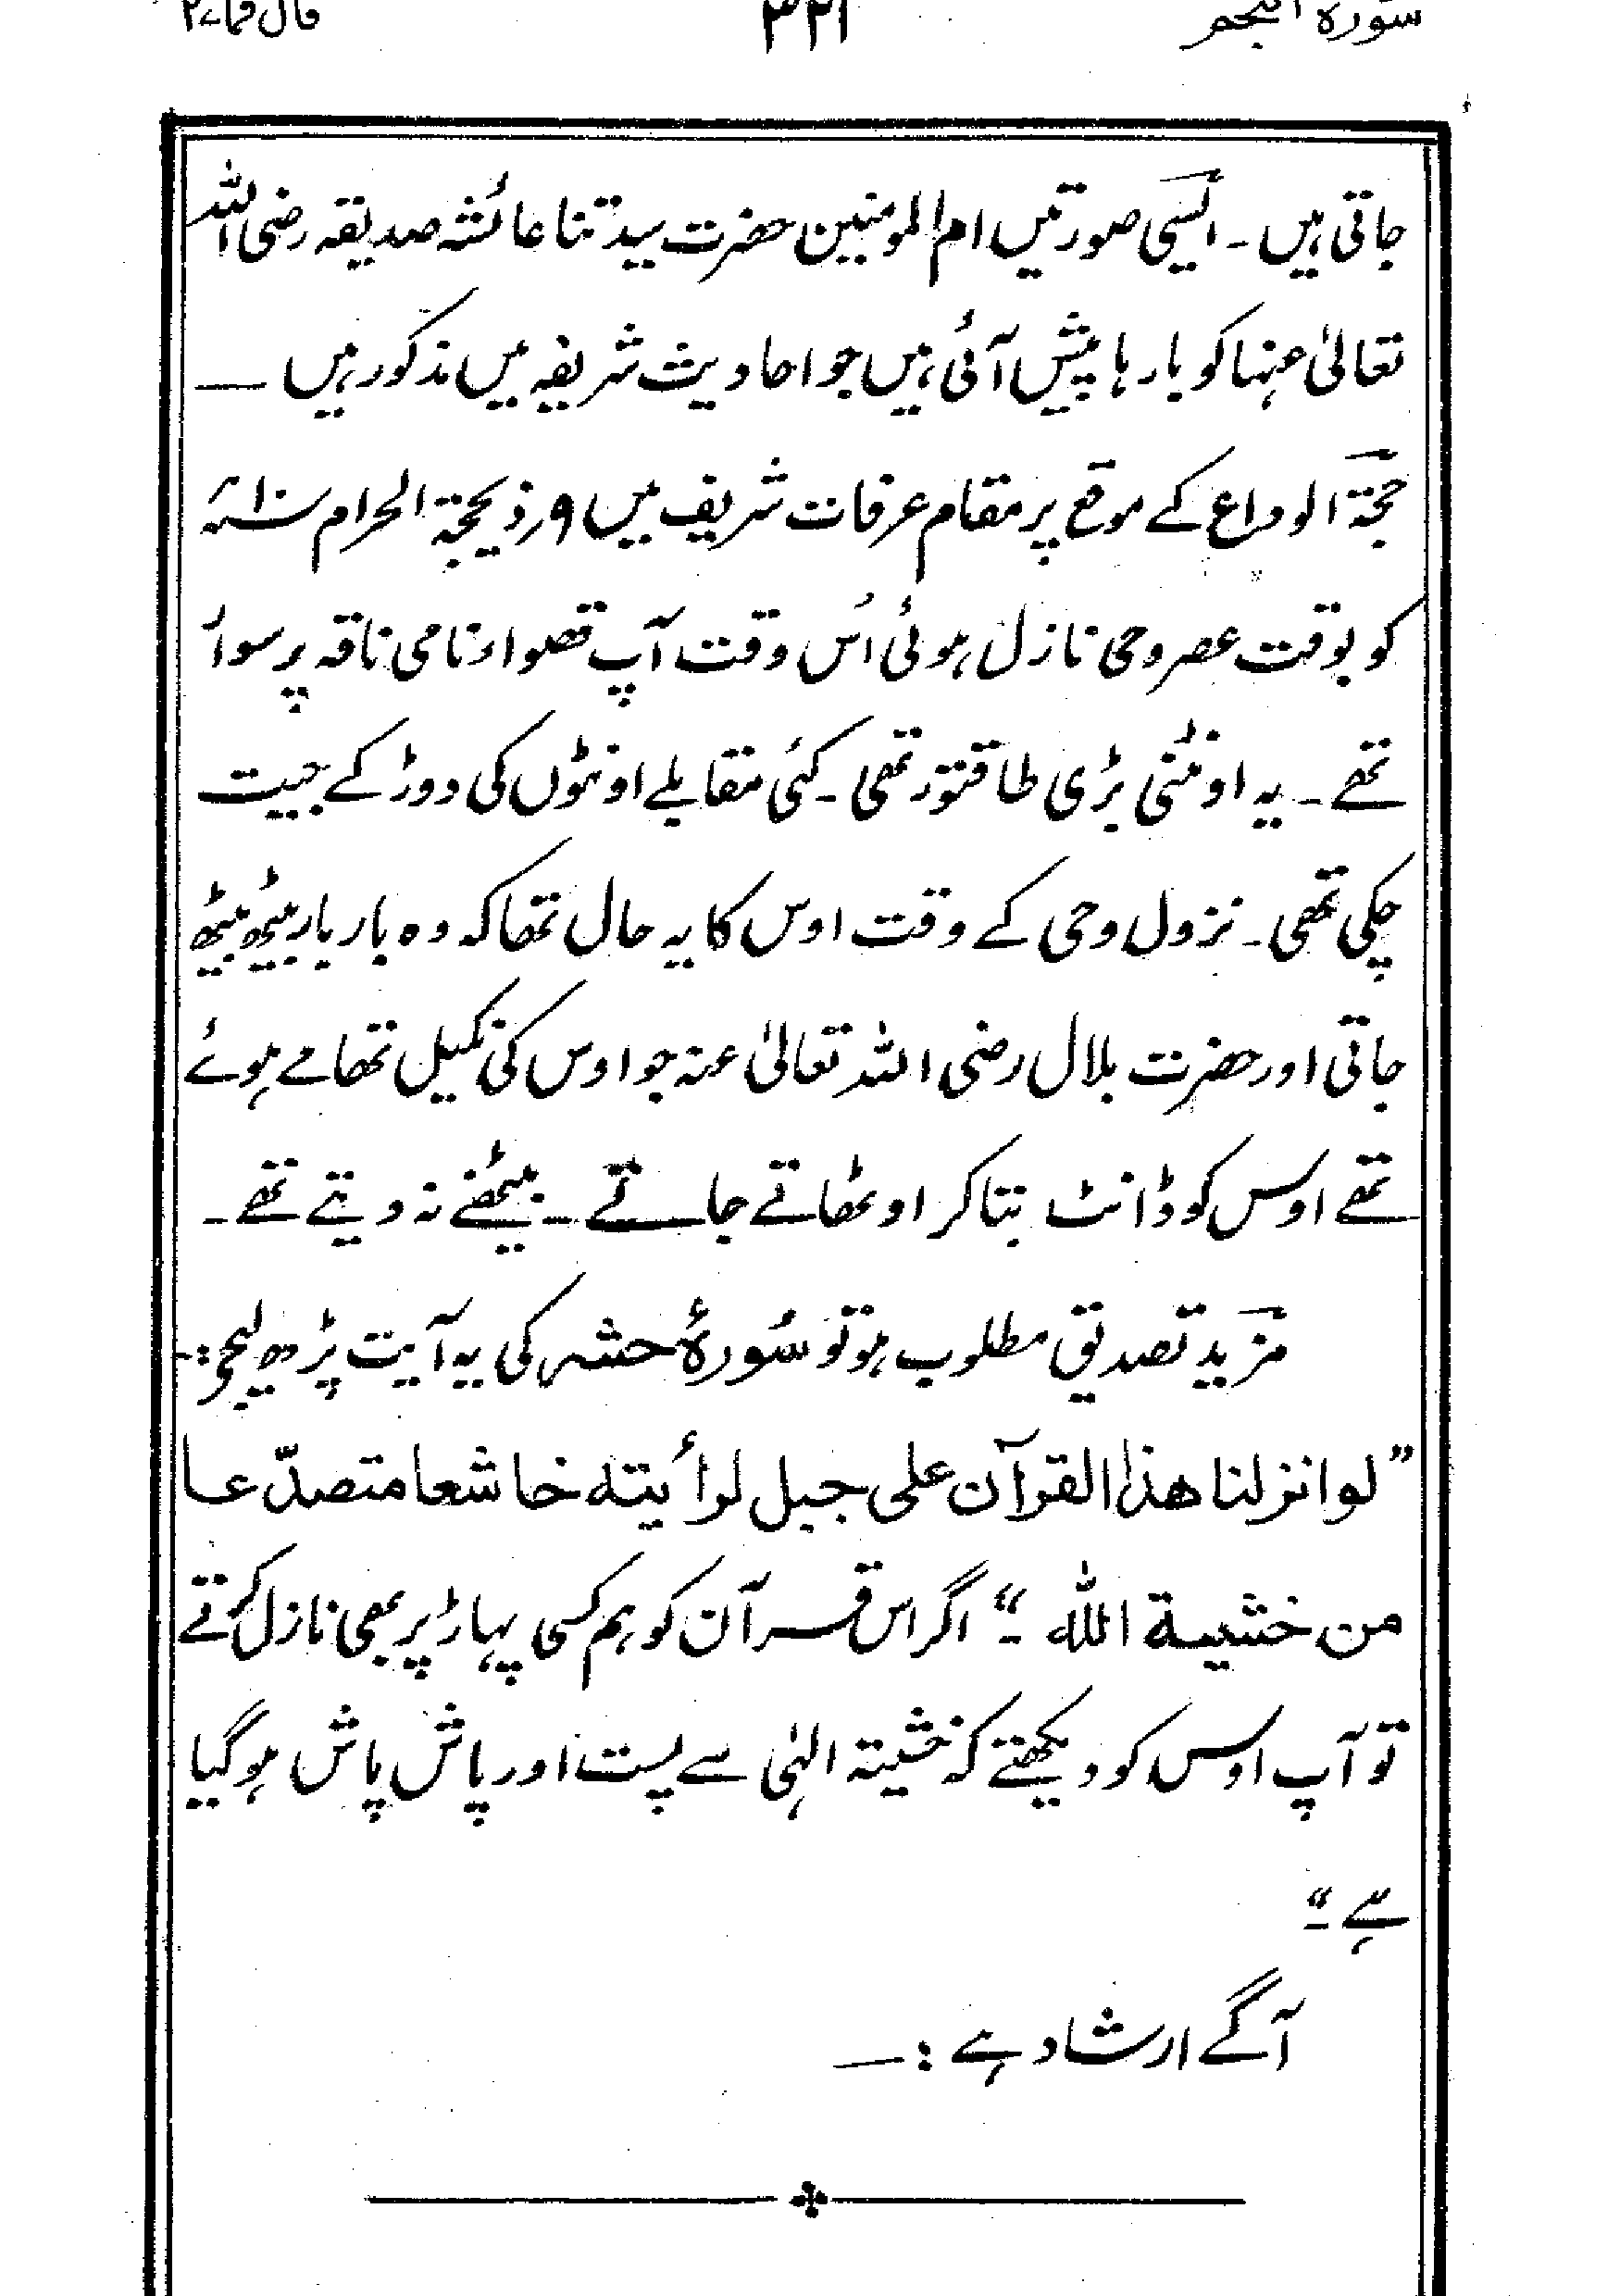 سورة النجم ۳۲۱ قال فما ۲۷
جاتی ہیں ۔ ایسی صورتیں ام المومنین حضرت سیدتنا عائشہ صدیقہ رضی اللہ
تعالیٰ عنہا کو بارہا پیش آئی ہیں جو احادیث شریفہ میں مذکور ہیں ــ
حجۃ الوداع کے موقع پر مقام عرفات شریف میں ۹ر ذیحجۃ الحرام سنہ ۱۰ھ
کو بوقت عصر وحی نازل ہوئی اُس وقت آپ قصواء نامی ناقہ پر سوار
تھے ۔ یہ اونٹنی بڑی طاقتور تھی ۔ کئی مقابلے اونٹوں کی دوڑ کے جیت
چکی تھی ۔ نزول وحی کے وقت اوس کا یہ حال تھا کہ وہ بار بار بیٹھ بیٹھ
جاتی اور حضرت بلال رضی اللہ تعالیٰ عنہ جو اوس کی نکیل تھامے ہوئے
تھے اوس کو ڈانٹ بتا کر اوٹھاتے جاتے ۔ بیٹھنے نہ دیتے تھے ۔
مزید تصدیق مطلوب ہو تو سُورۂ حشر کی یہ آیت پڑھ لیجیے :۔
” لو انزلنا هذا القرآن على جبل لرأيته خاشعا متصدّعا
من خشية الله ۔“ اگر اس قرآن کو ہم کسی پہاڑ پر بھی نازل کرتے
تو آپ اوس کو دیکھتے کہ خشیتہ الہٰی سے پست اور پاش پاش ہو گیا
ہے ۔“
آگے ارشاد ہے : ــ